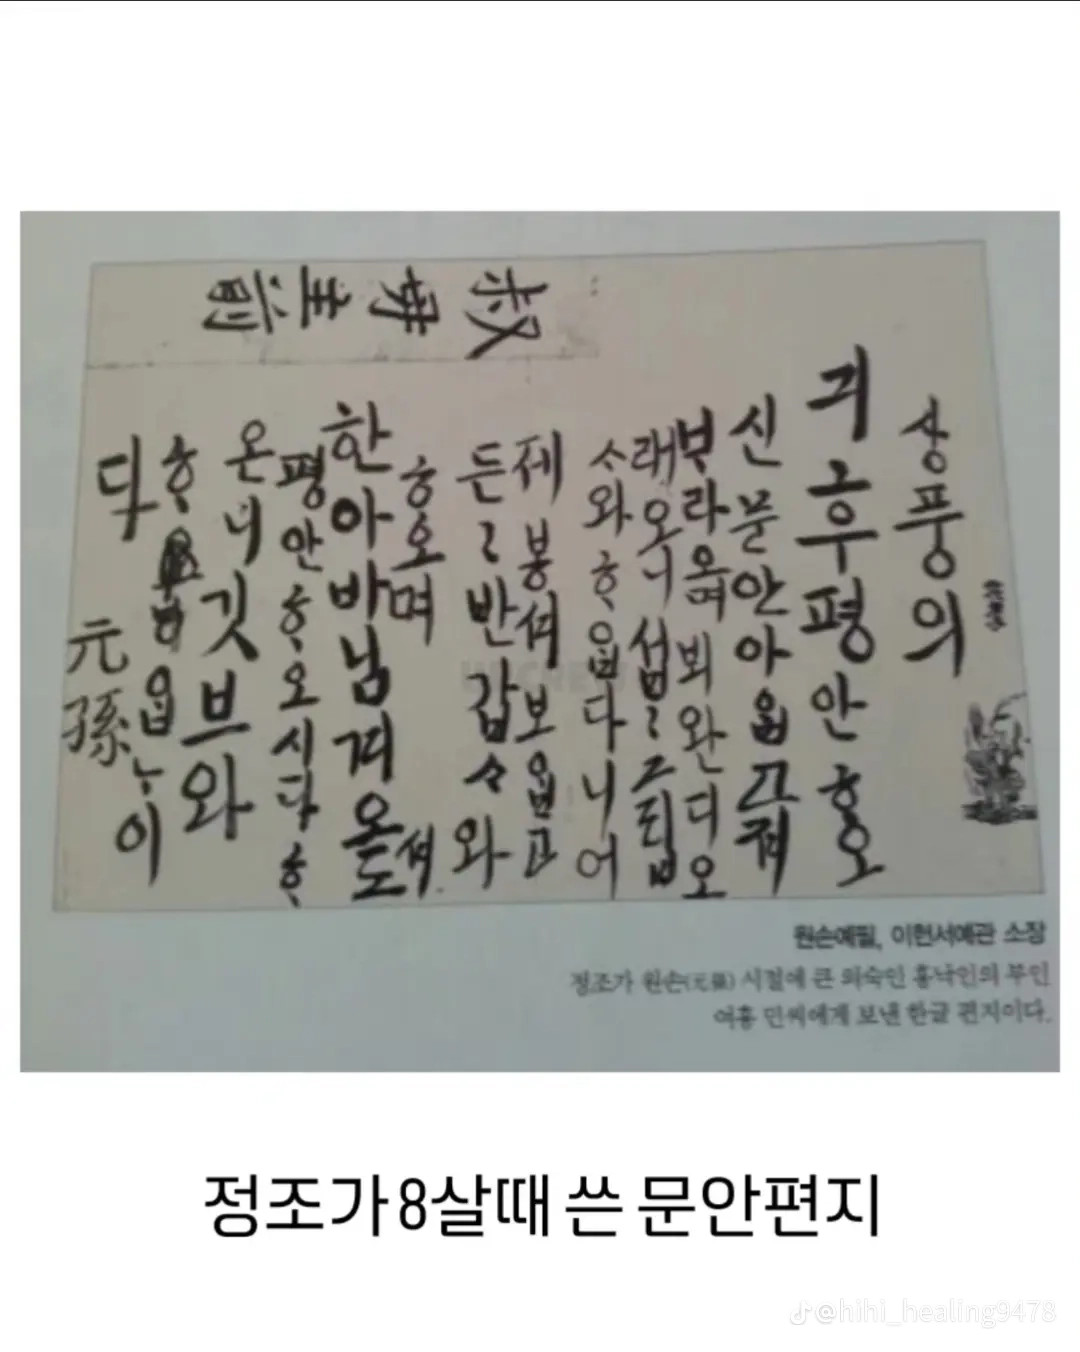 叔母主前
상풍의
긔후평안ᄒᆞ오
신 문안 아ᄋᆞᆸ고져
ᄇᆞ라오며 뵈완 디 오
래오니 섭〻 그립
ᄉᆞ와 ᄒᆞᄋᆞᆸ다니 어
제 봉셔 보ᄋᆞᆸ고
든〻 반갑ᄉᆞ와
ᄒᆞ오며
한아바님 겨오셔도
평안ᄒᆞ오시다 ᄒᆞ
온니 깃브와
ᄒᆞᄋᆞᆸᄂᆞ이
다
元孫
원손예필, 이헌서예관 소장
정조가 원손(元孫) 시절에 큰 외숙인 홍낙인의 부인
여흥 민씨에게 보낸 한글 편지이다.
정조가 8살때 쓴 문안편지
@hihi_healing9478